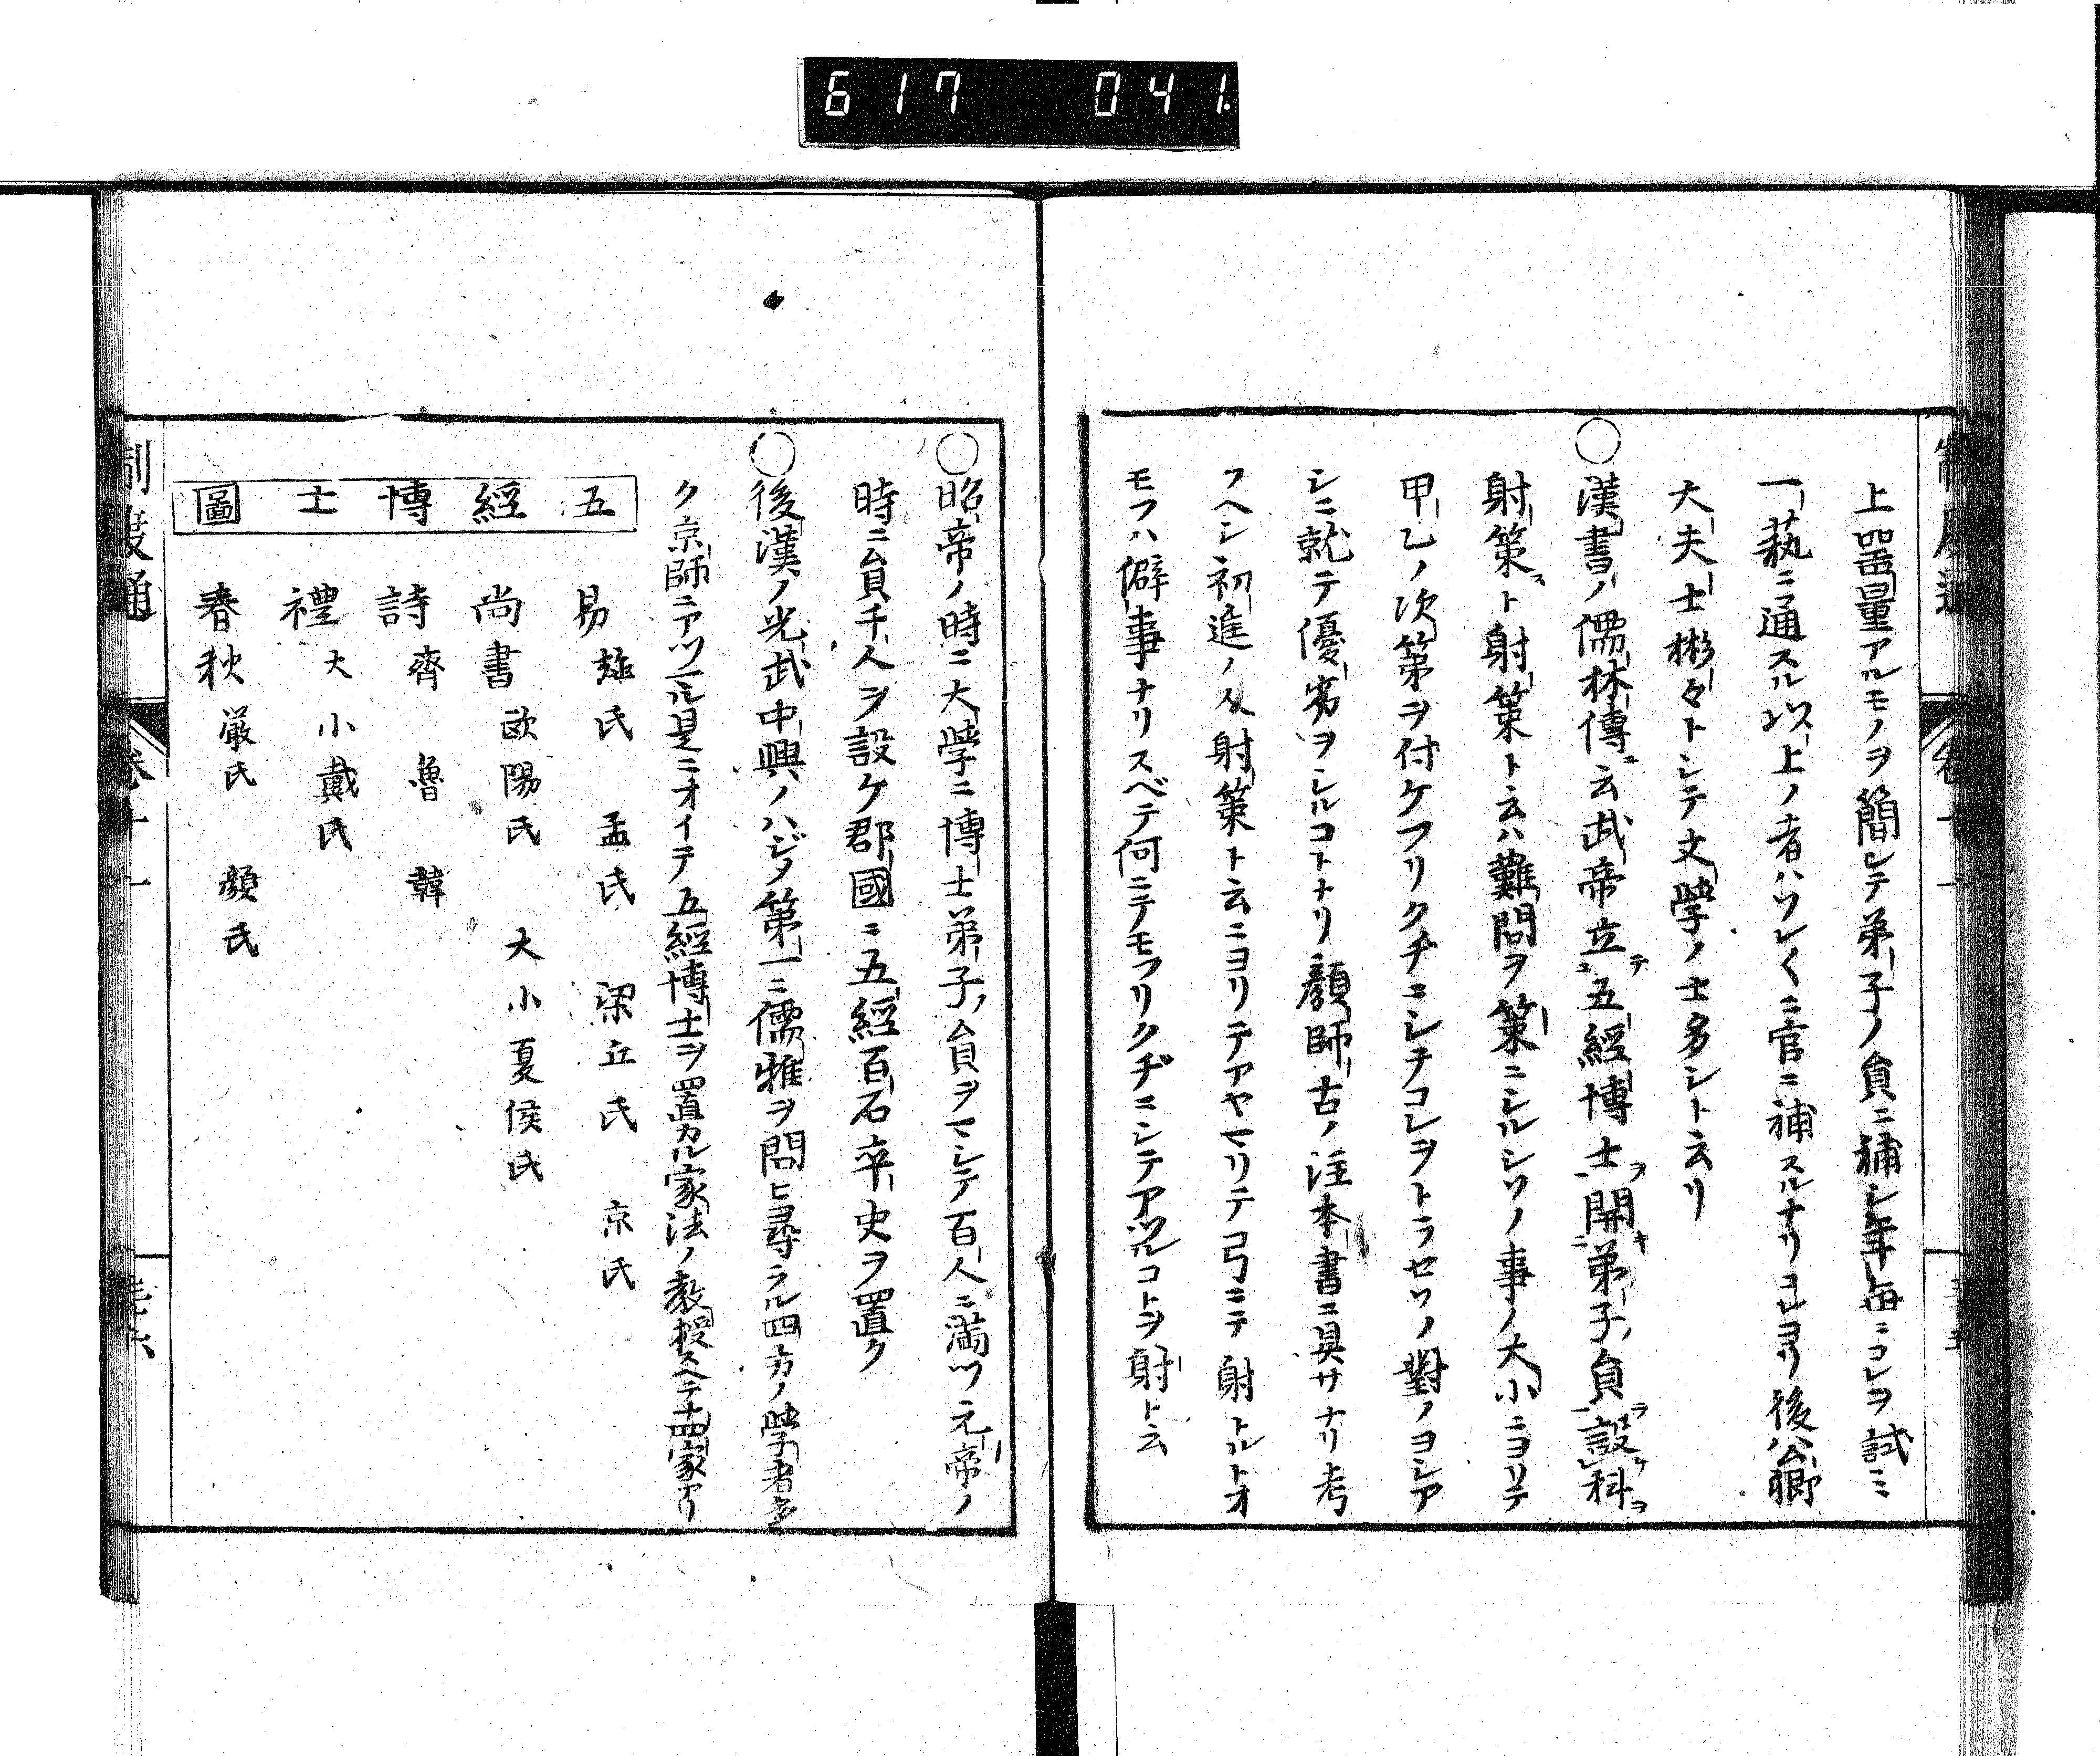 617 041
上器量アルモノヲ簡シテ弟子ノ員ニ補シ年毎ニコレヲ試ミ
一藝ニ通スル以上ノ者ハソレ〱ニ官ニ補スルナリコレヨリ後公卿
大夫士彬々トシテ文學ノ士多シト云リ
○漢書ノ儒林傳ニ云武帝立テ五經博士ヲ開キ弟子ノ員ヲ設ケ科ヲ
射策ス卜射策ト云ハ難問ヲ策ニシルシソノ事ノ大小ニヨリテ
甲乙ノ次第ヲ付ケフリクヂニシテコレヲトラセソノ對ノヨシア
シニ就テ優劣ヲシルコトナリ顔師古ノ注本書ニ具サナリ考
フヘシ初進ノ人射策ト云ニヨリテアヤマリテ弓ニテ射トルトオ
モフハ僻事ナリスベテ何ニテモフリクヂニシテアツルコトヲ射ト云
○昭帝ノ時ニ大學ニ博士弟子ノ員ヲマシテ百人ニ満ツ元帝ノ
時ニ員千人ヲ設ケ郡國ニ五經百石卒史ヲ置ク
○後漢ノ光武中興ノハジメ第一ニ儒雅ヲ問ヒ尋ラル四方ノ學者多
ク京師ニアツマル是ニオイテ五經博士ヲ置カル家法ノ教授スヘテ十四家アリ
五經博士圖
易 施氏 孟氏 梁丘氏 京氏
尚書 歐陽氏 大小夏侯氏
詩 齊 魯 韓
禮 大小戴氏
春秋 嚴氏 顔氏
制度通 卷十一